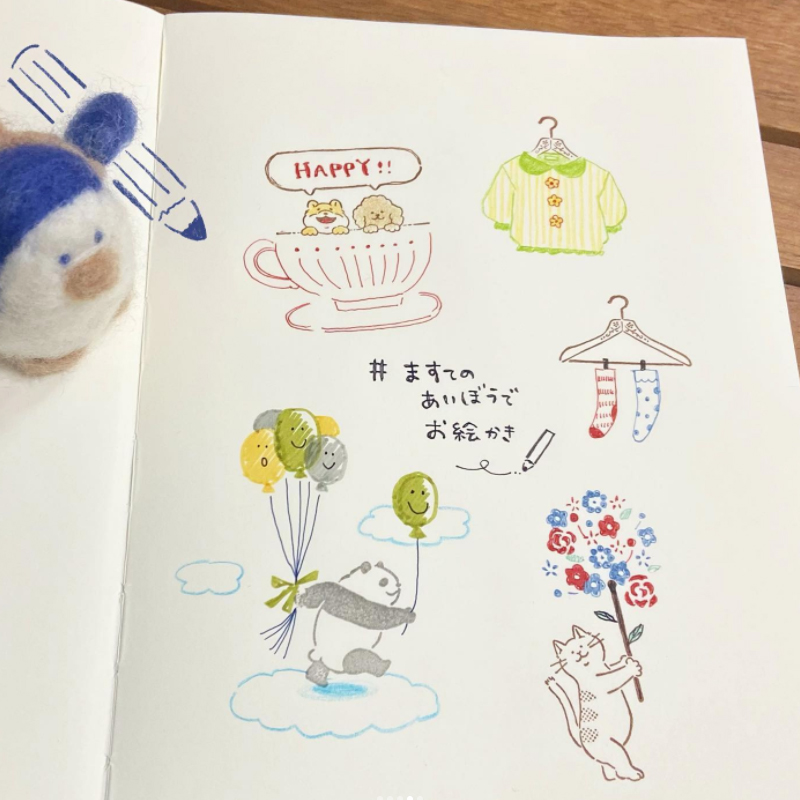 HAPPY!!
# ますての
あいぼうで
お絵かき